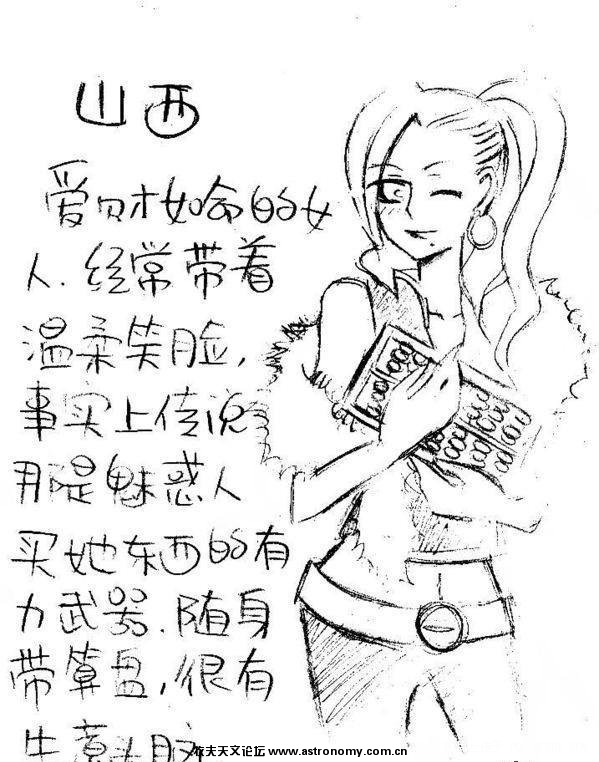 山西
爱财如命的女
人.经常带着
温柔笑脸,
事实上传说
那是魅惑人
买她东西的有
力武器.随身
带算盘,很有
生意头脑
牧夫天文论坛 www.astronomy.com.cn